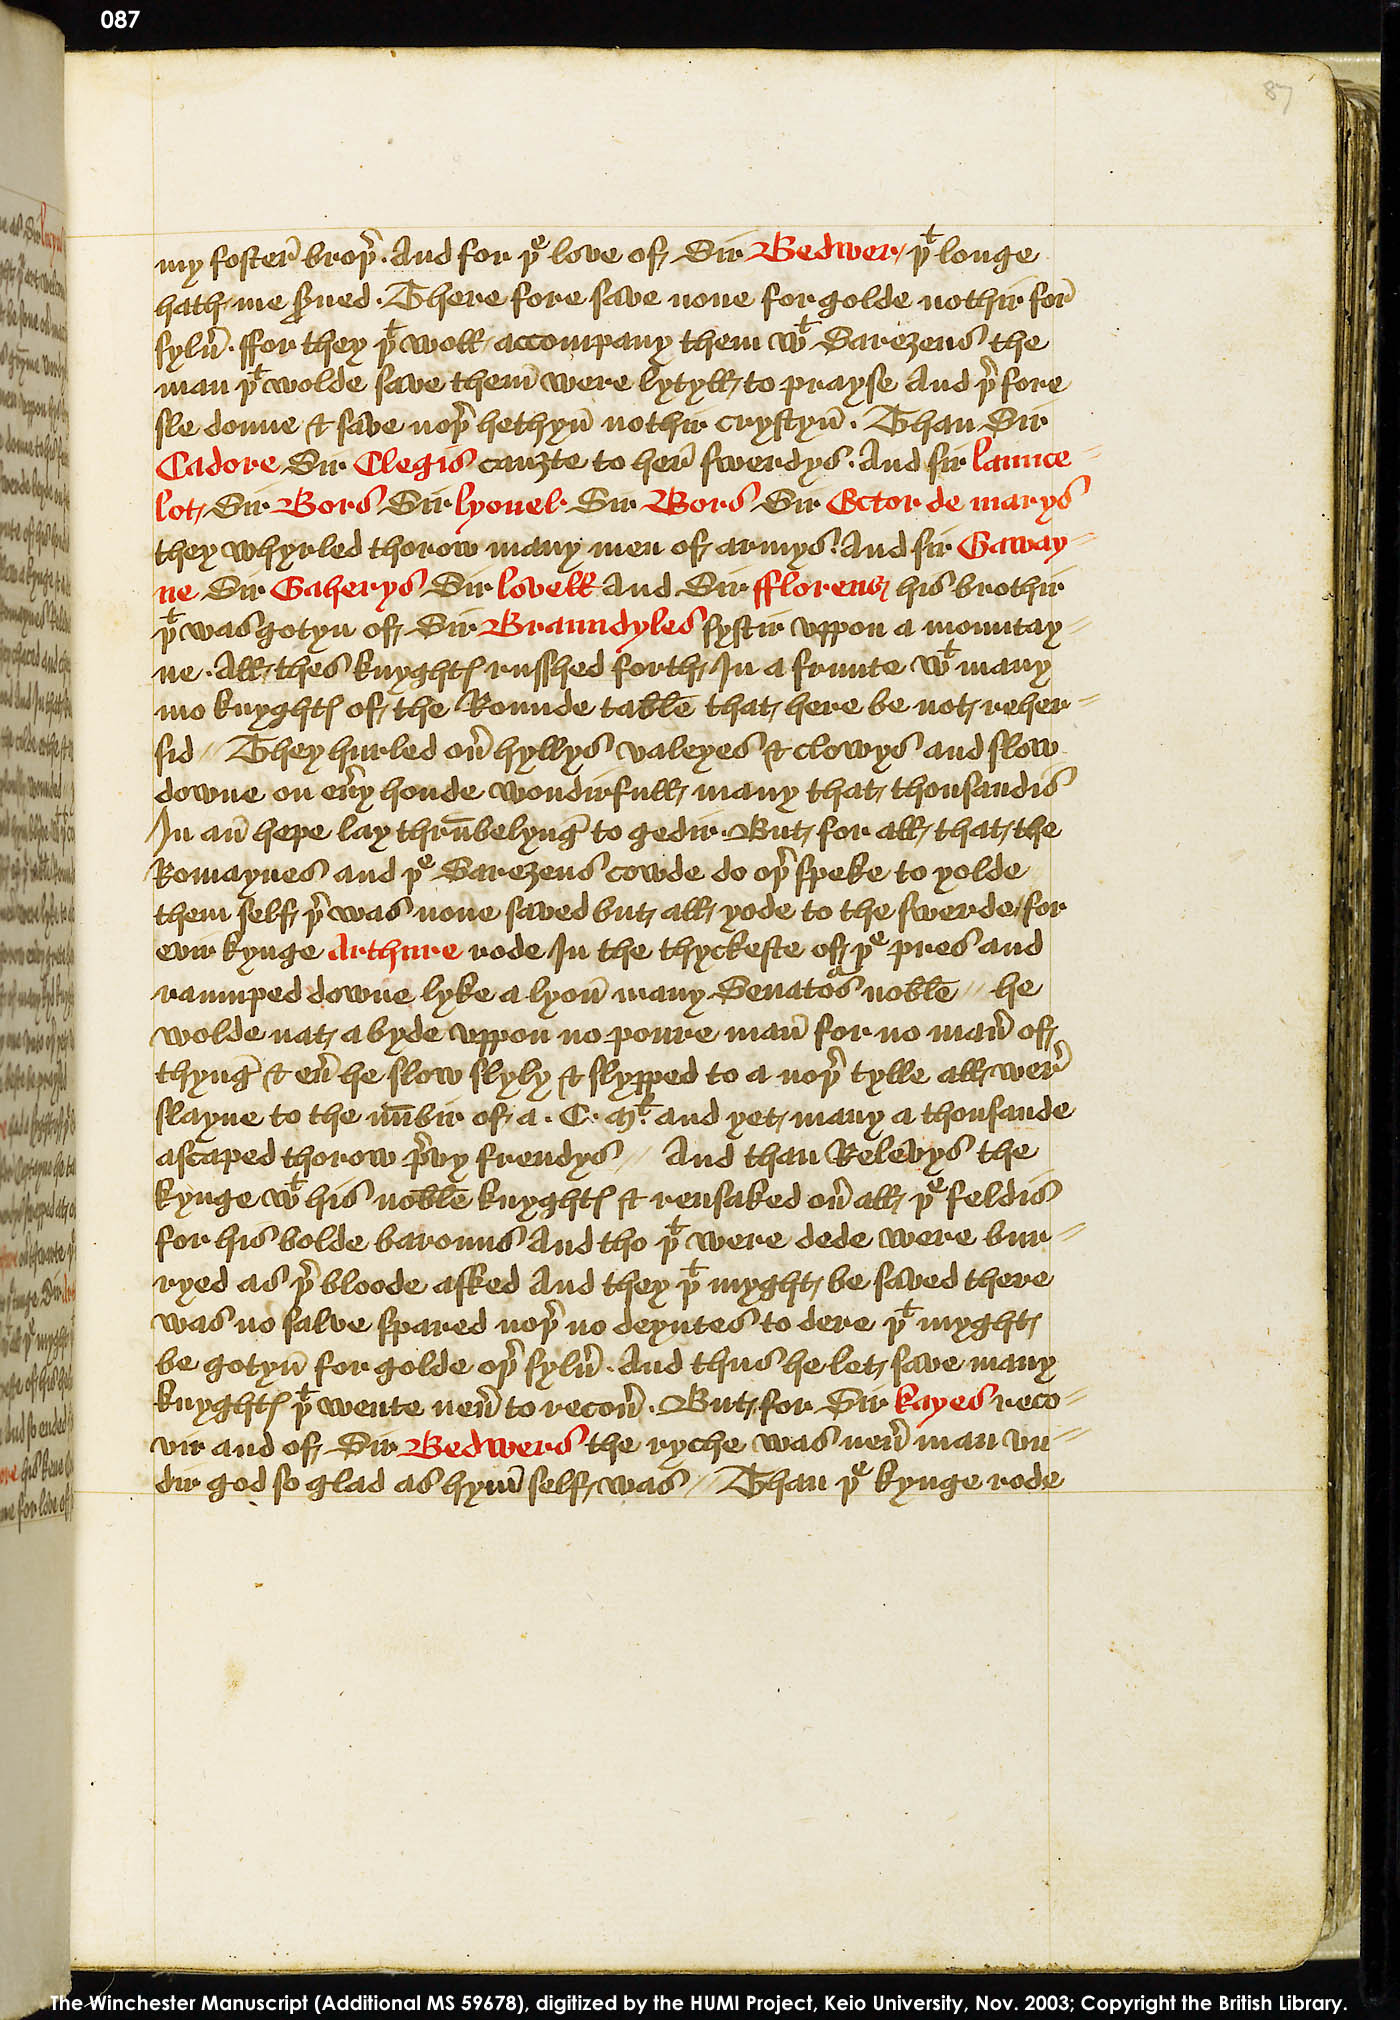 087
87
my foster̄ broþ̉ · And for þͤ love of Sir Bedwer / þᵗ longe
hath me s̉ued · There fore save none for golde nothir for̄
sylủ · ffor they þᵗ woll accompany them wᵗ Sarezens the
man þᵗ wolde save them̄ were lytyll to prayse And þ̉ fore
sle doune & save noþ̉ hethyn̄ nothir crystyn̄ · Than Sir
Cadore Sir Clegis cauȝte to her̄ swerdys · And sir launce-
lot Sir Bors Sir lyonel Sir Bors Sir Ector de marys
they whyrled thorow many men of armys · And sir Gaway-
ne Sir Gaherys Sir lovell And Sir fflorens his brothir
þᵗ was gotyn of Sir Braundyles systir vppon a mountay-
ne · All thes knyghtꝭ russhed forth In a frunte wᵗ many
mo knyghtꝭ of the Rounde table that here be not reher-
sid // They hurled oủ hyllys valeyes & clowys and slow
downe on eủy honde wondirfull many that thousandis
In an̄ hepe lay thrūbelyng to gedir · But for all that the
Romaynes and þͤ Sarezens cowde do oþ̉ speke to yolde
them self þ̉ was none saved but all yode to the swerde / for
evir kynge Arthure rode In the thyckeste of þͤ pres and
raumped downe lyke a lyon̄ many Senatoᷓs noble // he
wolde nat abyde vppon no poure man̄ for no man̉ of
thyng & eủ he slow slyly & slypped to a noþ̉ tylle all wer̉
slayne to the nūbir of a · C · Mᵗ · and yet many a thousande
ascaped thorow p̉vy frendys // And than Relevys the
kynge wᵗ his noble knyghtꝭ & rensaked oủ all þͤ feldis
for his bolde barouns And tho þᵗ were dede were bur-
ryed as þ̉ bloode asked And they þᵗ myght be saved there
was no salve spared noþ̉ no deyntes to dere þᵗ myght
be gotyn̄ for golde oþ̉ sylủ · And thus he let save many
knyghtꝭ þᵗ wente neủ to recoủ · But for Sir kayes reco-
vir and of Sir Bedwers the ryche was neủ man vn-
dir god so glad as hym̄ self was // Than þͤ kynge rode
The Winchester Manuscript (Additional MS 59678), digitized by the HUMI Project, Keio University, Nov. 2003; Copyright the British Library.